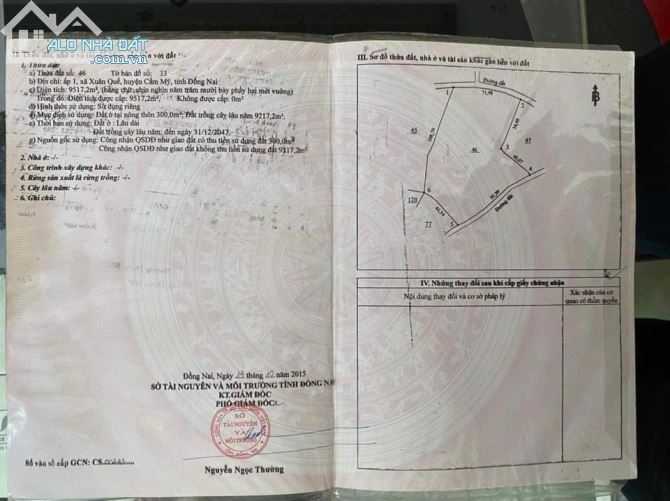 ALO NHÀ ĐẤT
.com.vn
II. Thửa đất, nhà ở và tài sản khác gắn liền với đất
1. Thửa đất:
a) Thửa đất số: 46 Tờ bản đồ số: 33
b) Địa chỉ: ấp 1, xã Xuân Quế, huyện Cẩm Mỹ, tỉnh Đồng Nai
c) Diện tích: 9517,2m², (bằng chữ: chín nghìn năm trăm mười bảy phẩy hai mét vuông)
Trong đó: Diện tích được cấp: 9517,2m² Không được cấp: 0m²
d) Hình thức sử dụng: Sử dụng riêng
đ) Mục đích sử dụng: Đất ở tại nông thôn 300,0m²; Đất trồng cây lâu năm 9217,2m²
e) Thời hạn sử dụng: Đất ở: Lâu dài
Đất trồng cây lâu năm: đến ngày 31/12/2047
g) Nguồn gốc sử dụng: Công nhận QSDĐ như giao đất có thu tiền sử dụng đất 300,0m²
Công nhận QSDĐ như giao đất không thu tiền sử dụng đất 9217,2m²
2. Nhà ở: -/-
3. Công trình xây dựng khác: -/-
4. Rừng sản xuất là rừng trồng: -/-
5. Cây lâu năm: -/-
6. Ghi chú:
Đồng Nai, Ngày tháng năm 2015
SỞ TÀI NGUYÊN VÀ MÔI TRƯỜNG TỈNH ĐỒNG NAI
KT.GIÁM ĐỐC
PHÓ GIÁM ĐỐC
SỞ
TÀI NGUYÊN
VÀ
MÔI TRƯỜNG
Nguyễn Ngọc Thường
Số vào sổ cấp GCN: CS
III. Sơ đồ thửa đất, nhà ở và tài sản khác gắn liền với đất
B
Đường đất
1
71,98
2
45
46
47
3
4
6
120
5
77
Đường đất
IV. Những thay đổi sau khi cấp giấy chứng nhận
Nội dung thay đổi và cơ sở pháp lý
Xác nhận của cơ
quan có thẩm quyền